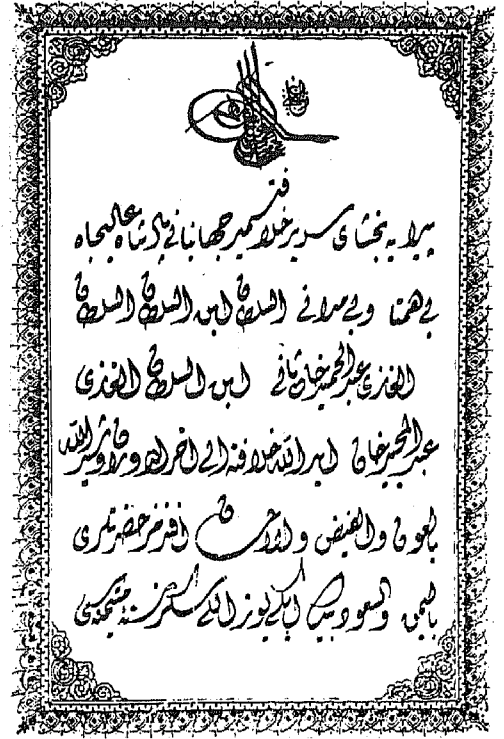 پیرایه بخشای سریر خلافتسمیر جهانبانی پادشاه عالیجاه
بی همتا و بی مدانی السلطان ابن السلطان السلطان
الغازی عبد الحمید خان ثانی ابن السلطان الغازی
عبد المجید خان اید الله خلافته الی اخر الدوران
بالعون والفیض والاحسان افندمز حضرتلری
بالیمن والسعود بیك ایكیوز اللی سكز سنه